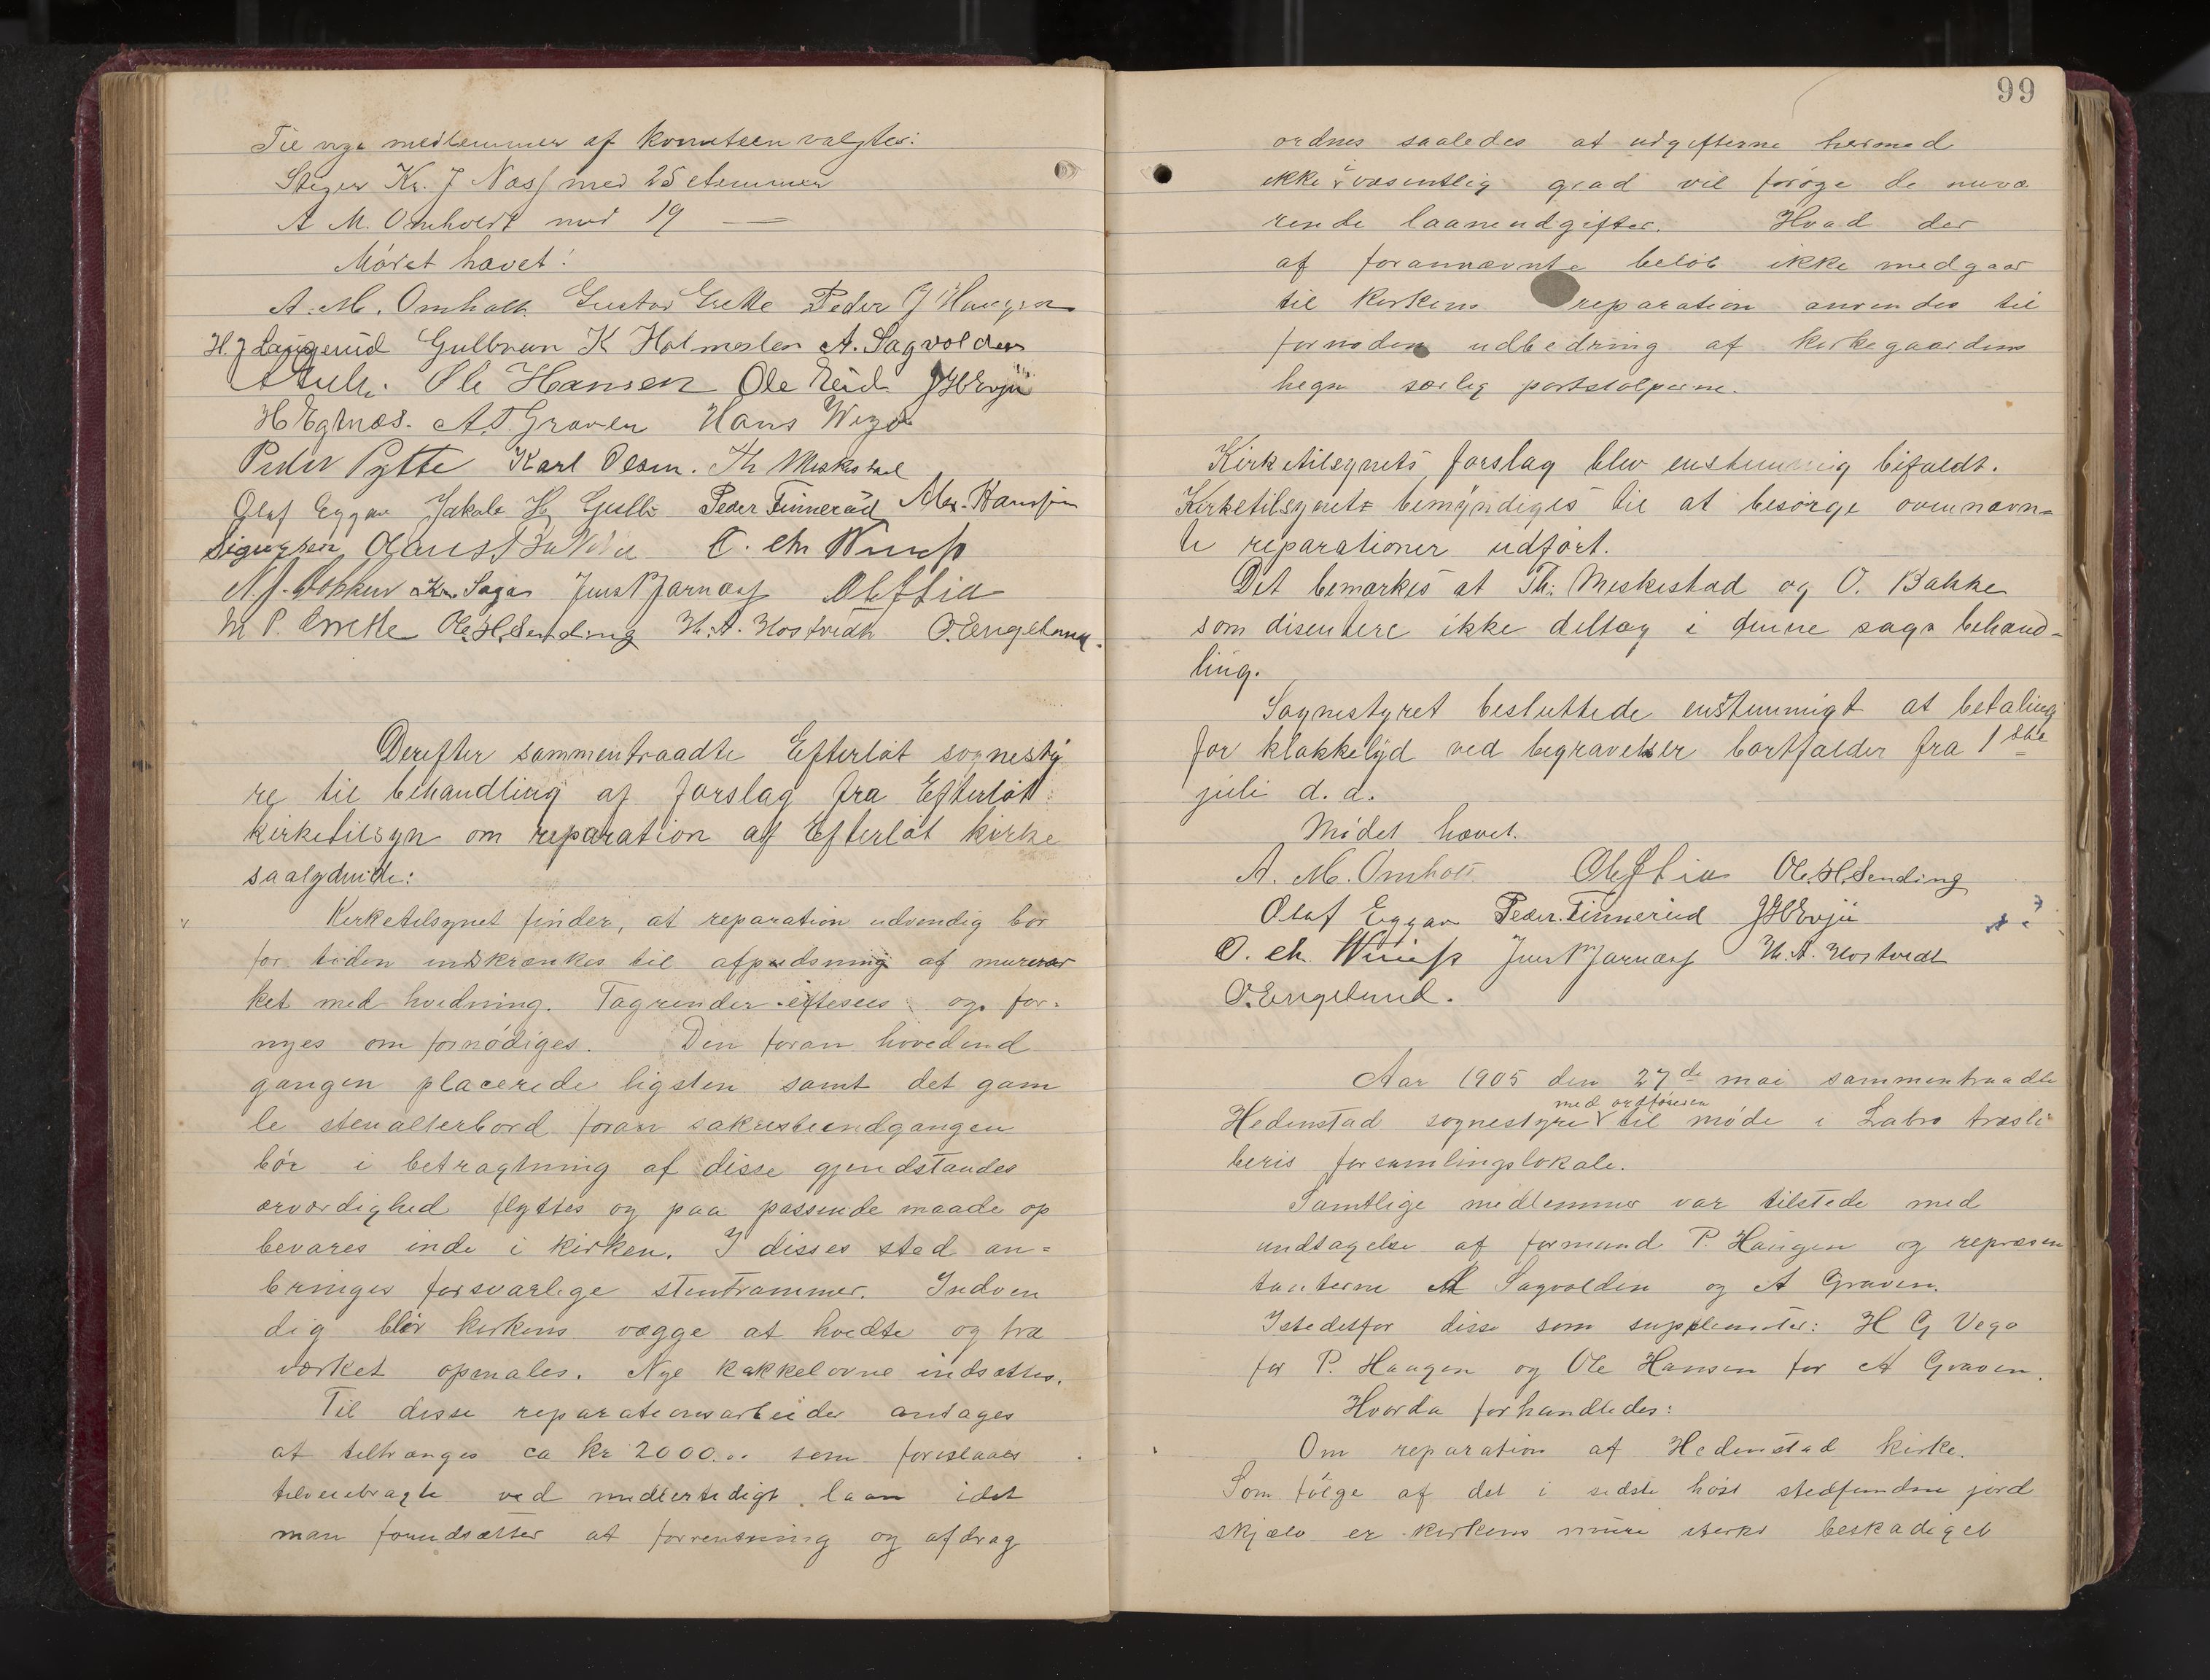 Til nye medlemmer af komiteen valgtes:
Steger Kr. J Næss med 25 stemmer
A M. Omholdt med 19 —
Mødet hævet!
A. M. Omholt Gustav Grette Peder J Haugen
H. J Laugerud Gulbran K Holmeslen A. Sagvolden
Ole Hansen Ole J H Evju
H Egtnæs. A. T. Graven Hans Wego
Peder Pytte Karl Olsen. Th Meskstad
Olaf Eggar Jakob H Gulli Peder Finnerud Alex. Hanssen
O. Chr
Kr. Saga Jens P Jarnæss Ole Flia
M P. Grette Ole. H. Sending H. A. Hostvedt O. Engelund.
Derefter sammentraadte Efterløt sognesty
re til behandling af forslag fra Efterløt
kirketilsyn om reparation af Efterløt kirke
saalydende:
Kirketilsynet finder, at reparation udvendig bør
for tiden indskrænkes til afpudsning af murvær
ket med hvidning. Tagrender eftesees og for=
nyes om fornødiges. Den foran hovedind
gangen placerede ligsten samt det gam
le stenalterbord foran sakristiindgangen
bør i betragtning af disse gjenstandes
ærværdighed flyttes og paa passende maade op
bevares inde i kirken. I disses sted an=
bringes forsvarlige stentrammer. Indven
dig blir kirkens vægge at hvidte og træ
værket opmales. Nye kakkelovne indsættes.
Til disse reparationsarbeider antages
at tiltrænges ca kr 2000.00 som foreslaaes
tilveiebragte ved midlertidigt laan idet
man forudsætter at forrentning og afdrag
99
ordnes saaledes at udgifterne hermed
ikke i væsentlig grad vil forøge de nuvæ
rende laaneudgifter. Hvad der
af forannævnte beløb ikke medgaar
til kirkens reparation anvendes til
fornøden udbedring af kirkegaardens
hegn særlig portstolperne.
Kirketilsynets forslag blev enstemmig bifaldt.
Kirketilsynet bemyndiges til at besørge ovennævn=
te reparationer udført.
Det bemærkes at Th. Meskestad og O. Bakke
som disentere ikke deltog i denne sags behand-
ling.
Sognestyret besluttede enstemmigt at betaling
for klokkelyd ved begravelser bortfalder fra 1ste
juli d. a.
Mødet hævet.
A. M. Omholt Ole Flia Ole. H. Sending
Olaf Eggar Peder. Finnerud J H Evju
O. Ch. Jens P Jarnæss H. A. Hostvedt
O. Engelund.
Aar 1905 den 27de mai sammentraadte
med ordføreren
Hedenstad sognestyre til møde i Labro træsli
beris forsamlingslokale.
Samtlige medlemmer var tilstede med
undtagelse af formand P. Haugen og repræsen
tanterne A Sagvolden og A Graven.
Istedetfor disse som suppleanter: H G Vego
for P. Haugen og Ole Hansen for A Graven.
Hvorda forhandledes:
Om reparation af Hedenstad kirke.
Som følge af det i sidste høst stedfundne jord
skjælv er kirkens mure sterkt beskadiget